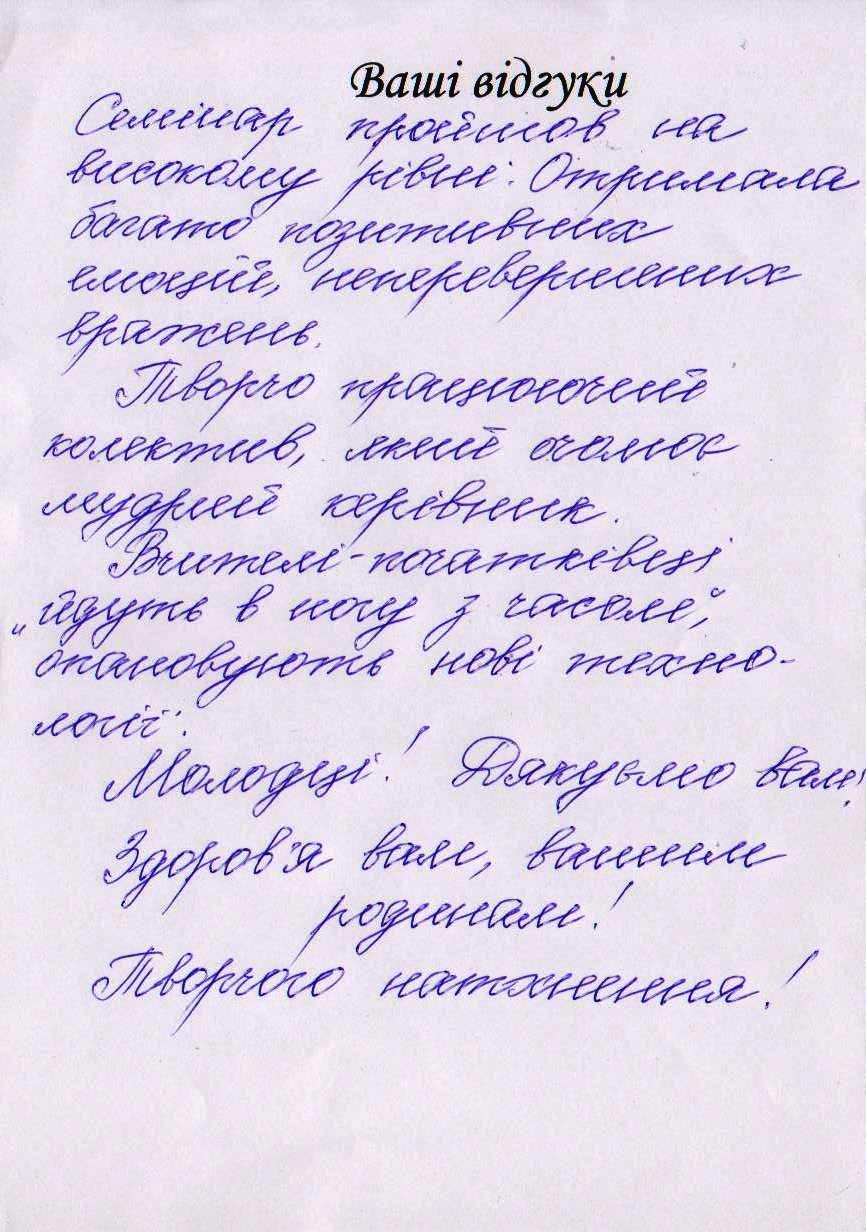 Ваші відгуки
Семінар пройшов на
високому рівні. Отримала
багато позитивних
емоцій, неперевершених
вражень.
Творчо працюючий
колектив, який очолює
мудрий керівник.
Вчителі-початківці
„йдуть в ногу з часом",
опановують нові техно-
логії.
Молодці! Дякуємо вам!
Здоров'я вам, вашим
родинам!
Творчого натхнення!